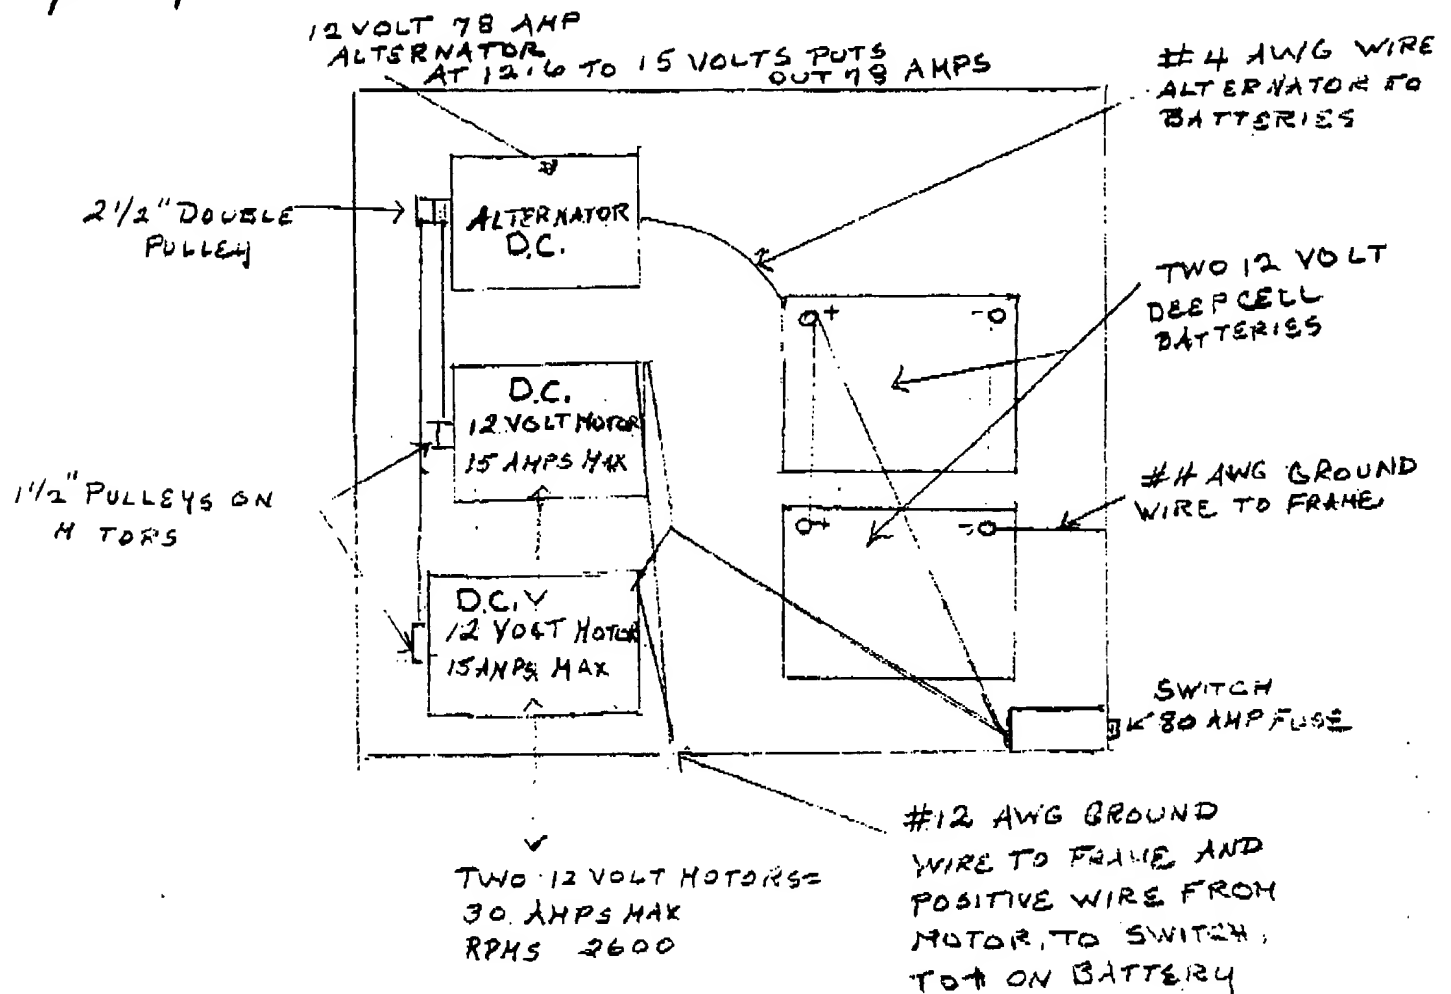 12 VOLT 78 AMP
ALTERNATOR
AT 12.6 TO 15 VOLTS PUTS
OUT 78 AMPS
#4 AWG WIRE
ALTERNATOR TO
BATTERIES
2 1/2" DOUBLE
PULLEY
ALTERNATOR
D.C.
TWO 12 VOLT
DEEP CELL
BATTERIES
+
-
D.C.
12 VOLT MOTOR
15 AMPS MAX
1 1/2" PULLEYS ON
M TORS
#4 AWG GROUND
WIRE TO FRAME
+
-
D.C.
12 VOLT MOTOR
15 AMPS MAX
SWITCH
80 AMP FUSE
TWO 12 VOLT MOTORS=
30 AMPS MAX
RPMS 2600
#12 AWG GROUND
WIRE TO FRAME AND
POSITIVE WIRE FROM
MOTOR, TO SWITCH,
TO + ON BATTERY